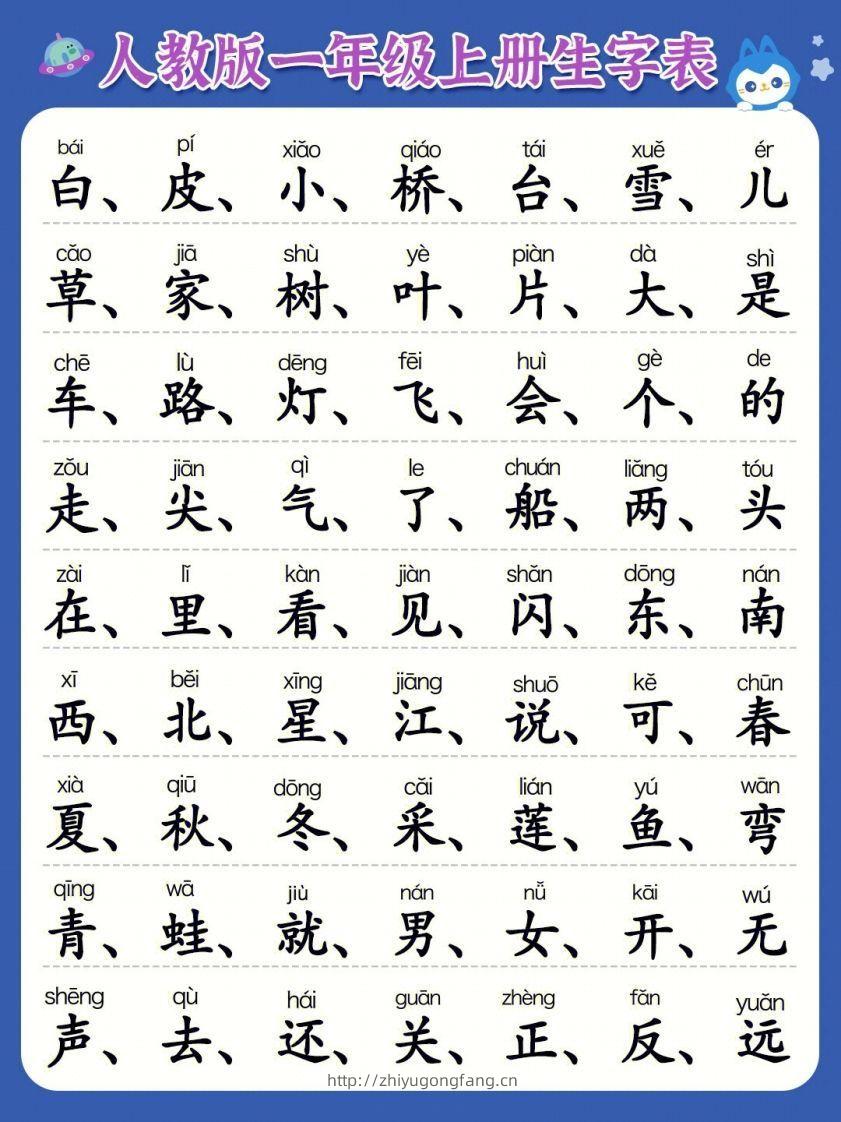 人教版一年级上册生字表
bái pí xiǎo qiáo tái xuě ér
白、皮、小、桥、台、雪、儿
cǎo jiā shù yè piàn dà shì
草、家、树、叶、片、大、是
chē lù dēng fēi huì gè de
车、路、灯、飞、会、个、的
zǒu jiān qì le chuán liǎng tóu
走、尖、气、了、船、两、头
zài lǐ kàn jiàn shǎn dōng nán
在、里、看、见、闪、东、南
xī běi xīng jiāng shuō kě chūn
西、北、星、江、说、可、春
xià qiū dōng cǎi lián yú wān
夏、秋、冬、采、莲、鱼、弯
qīng wā jiù nán nǚ kāi wú
青、蛙、就、男、女、开、无
shēng qù hái guān zhèng fǎn yuǎn
声、去、还、关、正、反、远
http://zhiyugongfang.cn